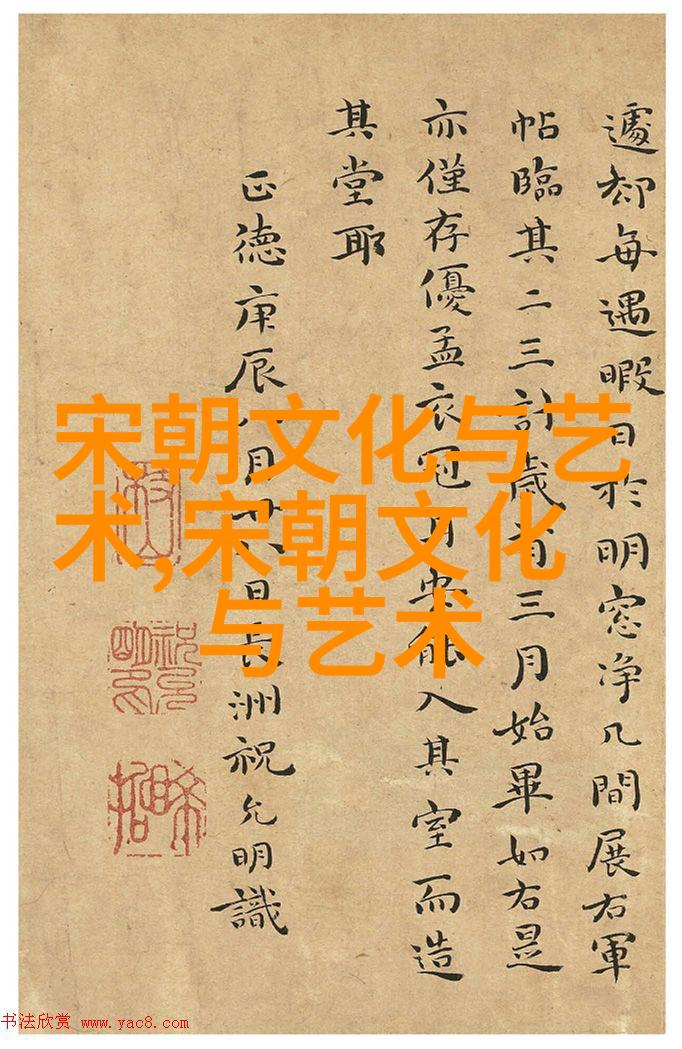 遽却每遇暇日於明窓净几間展右軍
帖臨其二三計歲有三月始畢如右是
亦僅存優孟衣冠耳安能入其室而造
其堂耶
正德庚辰八月廿日長洲祝允明識
宋朝文化与艺
术,宋朝文化
与艺术
书法欣赏 www.yac8.com